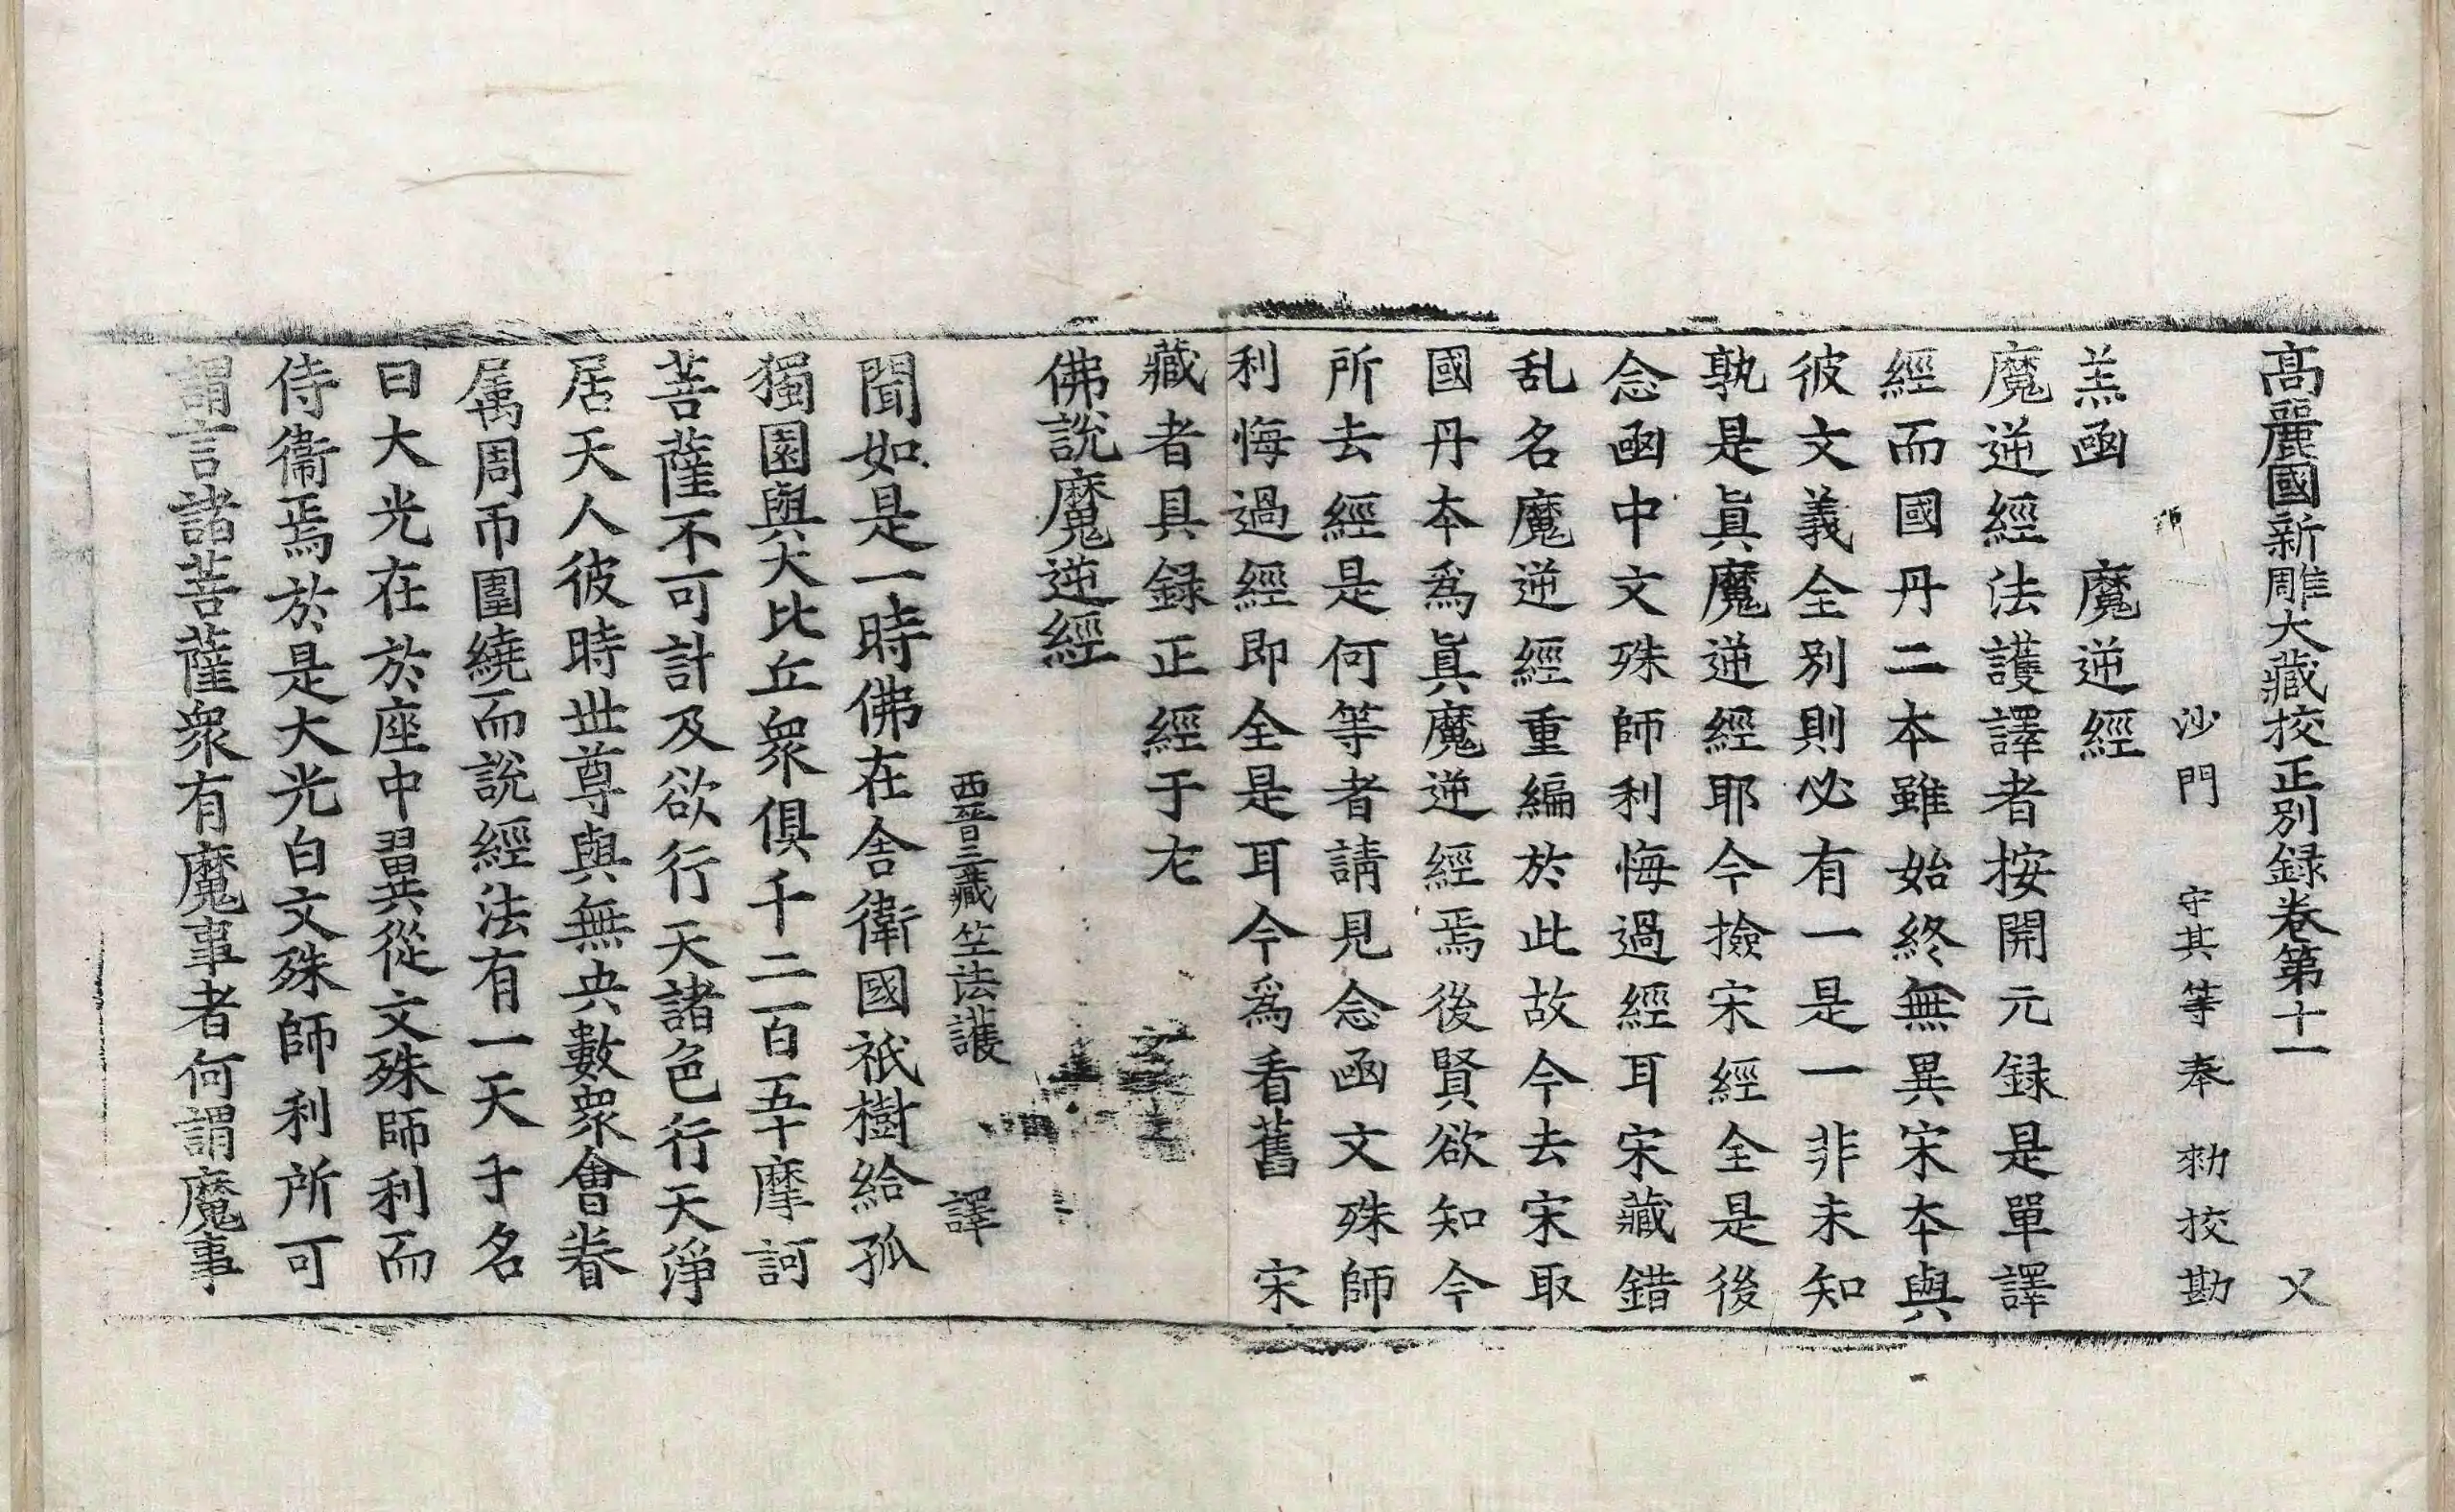 高麗國新雕大藏校正別録卷第十一 义
沙門 守其等奉 勑校勘
羔函 魔逆經
魔逆經法護譯者按開元録是單譯
經而國丹二本雖始終無異宋本與
彼文義全別則必有一是一非未知
孰是眞魔逆經耶今撿宋經全是後
念函中文殊師利悔過經耳宋藏錯
乱名魔逆經重編於此故今去宋取
國丹本爲眞魔逆經焉後賢欲知今
所去經是何等者請見念函文殊師
利悔過經即全是耳今爲看舊 宋
藏者具録正經于左
佛說魔逆經
西晉三藏竺法護 譯
聞如是一時佛在舍衛國祇樹給孤
獨園與大比丘衆俱千二百五十摩訶
菩薩不可計及欲行天諸色行天淨
居天人彼時世尊與無央數衆會眷
属周帀圍繞而說經法有一天子名
曰大光在於座中翼從文殊師利而
侍衞焉於是大光白文殊師利所可
謂言諸菩薩衆有魔事者何謂魔事